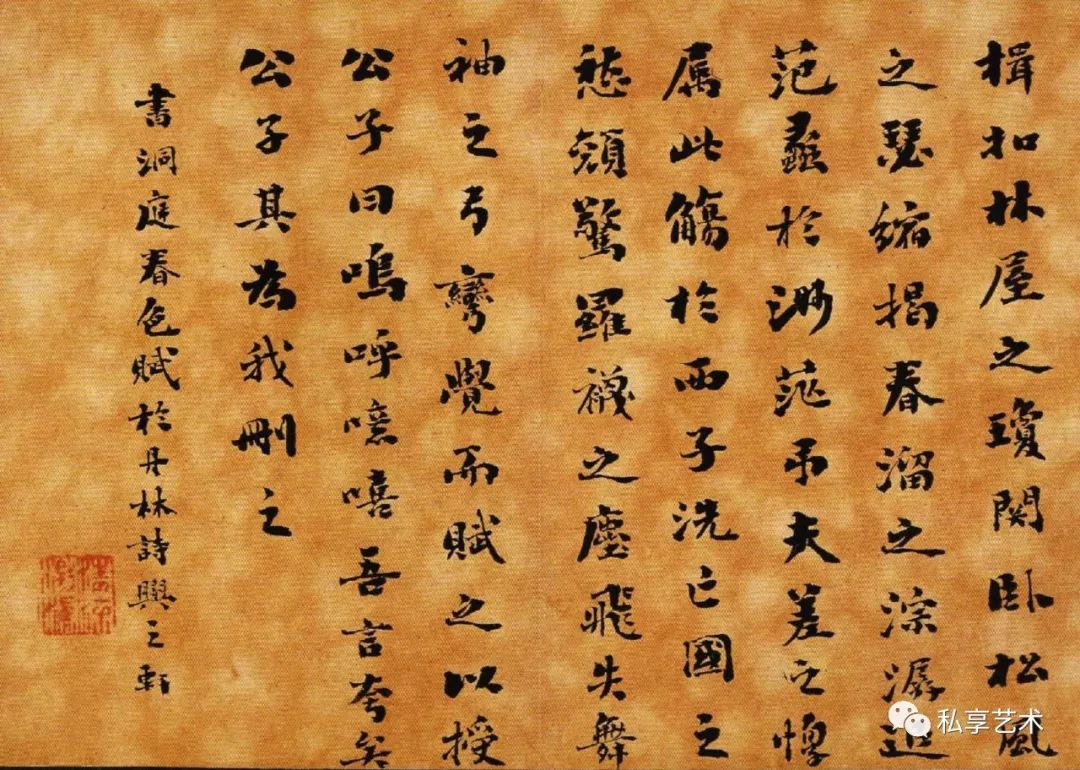 楫扣林屋之瓊関卧松風
之瑟縮揭春溜之淙潺追
范蠡於渺茫吊夫差之惸
属此觴於西子洗亡國之
愁顏驚羅襪之塵飛失舞
袖之弓彎覺而賦之以授
公子曰嗚呼噫嘻吾言夸矣
公子其為我刪之
書洞庭春色賦於丹林詩興之軒
私享艺术